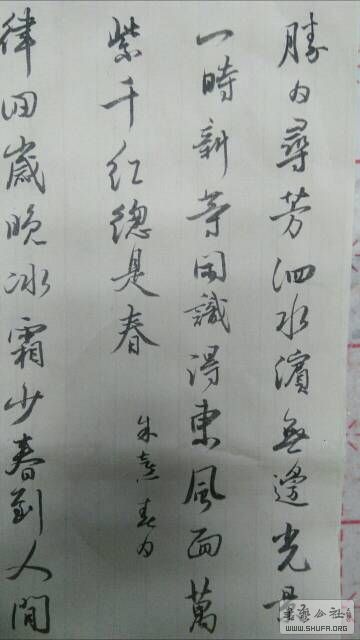 勝日尋芳泗水濱無邊光景
一時新等閑識得東風面萬
紫千紅總是春
朱熹春日
律回歲晚冰霜少春到人間
书艺公社
WWW.SHUFA.ORG